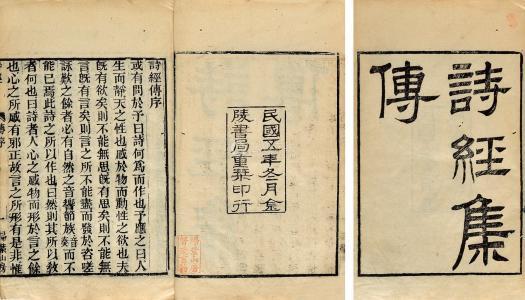 詩經集
傳
民國五年冬月金
陵書局重槧印行
詩經傳序
或有問於予曰詩何為而作也予應之曰人
生而靜天之性也感於物而動性之欲也夫
既有欲矣則不能無思既有思矣則不能無
言既有言矣則言之所不能盡而發於咨嗟
詠歎之餘者必有自然之音響節族音奏而不
能已焉此詩之所以作也曰然則其所以教
者何也曰詩者人心之感物而形於言之餘
也心之所感有邪正故言之所形有是非惟